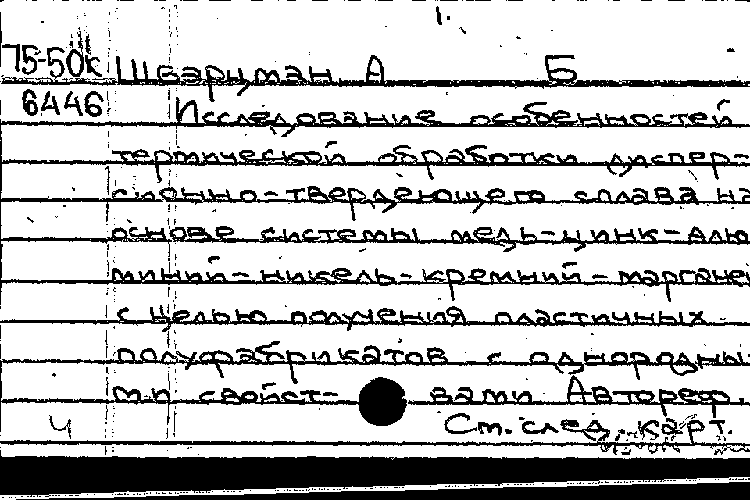 1.
75-50к Шварцман, А Б
6446 Исследование особенностей
термической обработки диспер-
сионно-твердеющего сплава на
основе системы медь-цинк-алю
миний-никель-кремний-марганец
с целью получения пластичных
полуфабрикатов с однородны
ми свойст- вами Автореф.
Ч См. след. карт.